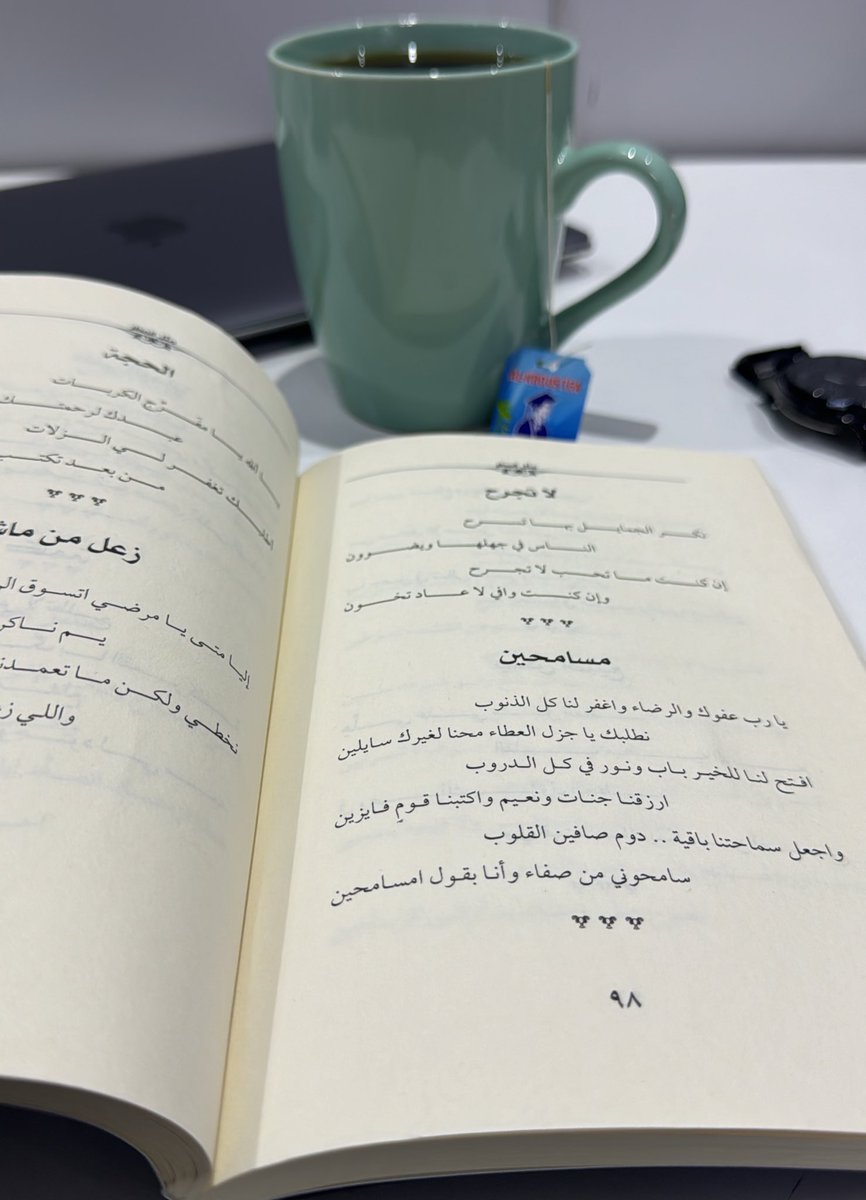 لا تجرح
نكر الجمايل جا تسرح
الناس في جهلها ويضرون
إن كنت ما تحب لا تجرح
وإن كنت وافي لا عاد تخون
مسامحين
يا رب عفوك والرضاء واغفر لنا كل الذنوب
نطلبك يا جزل العطاء محنا لغيرك سايلين
افتح لنا للخير باب ونور في كل الدروب
ارزقنا جنات ونعيم واكتبنا قومٍ فايزين
واجعل سماحتنا باقية .. دوم صافين القلوب
سامحوني من صفاء وأنا بقول امسامحين
٩٨
الحجة
يا الله يا مفرّج الكربات
عبدك لرحمتك
تغفر لي الزلات
من بعد
زعل من
إليا متى يا مرضي اتسوق
يم
نخطي ولكن ما
واللي